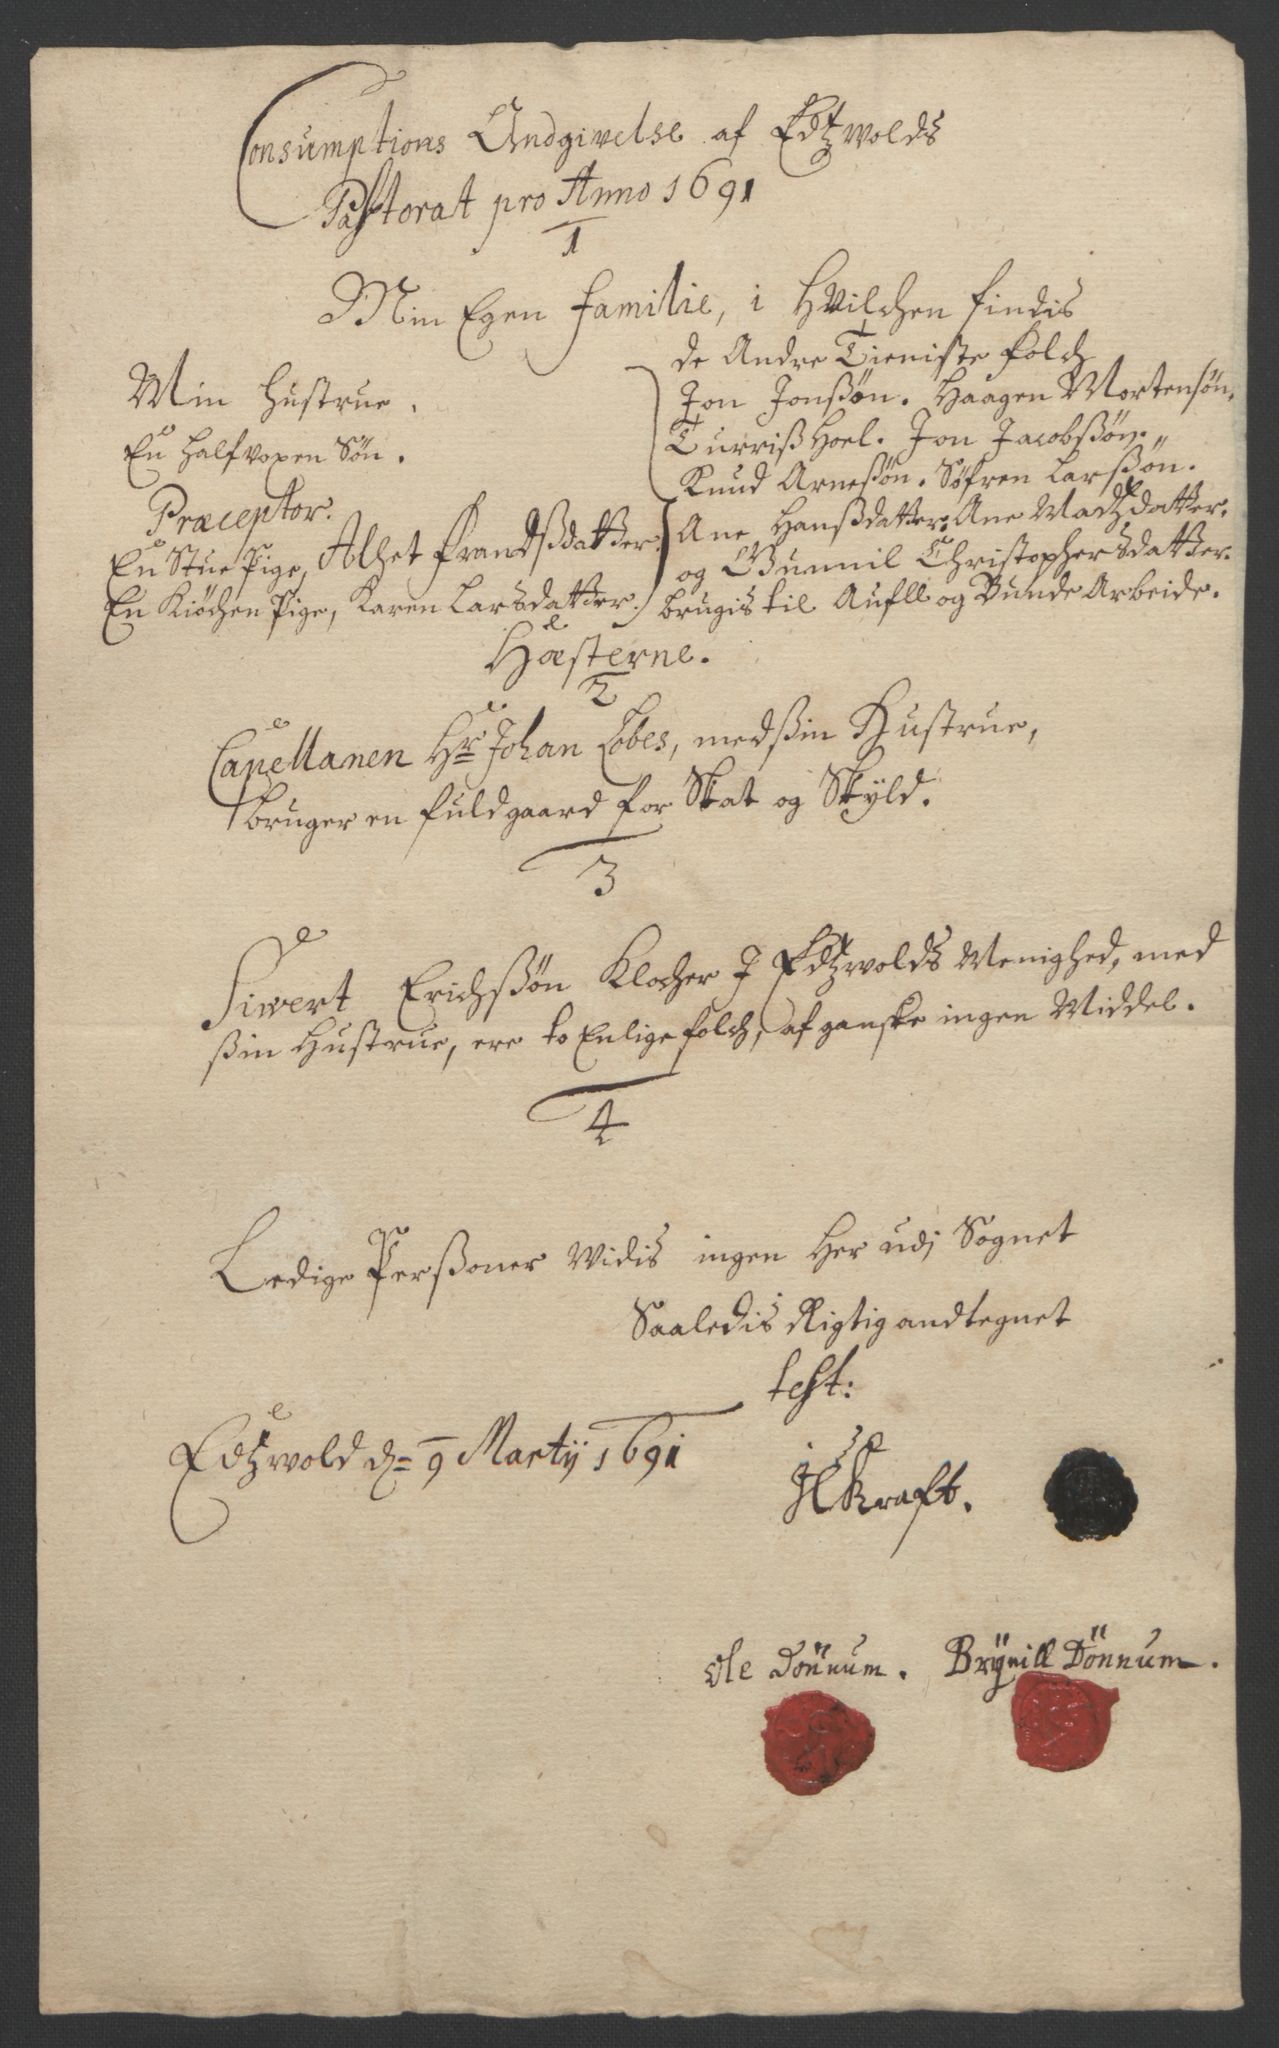 Consumptions Andgivelse af Edtzwolds
Pastorat pro Anno 1691
1
Min Egen familie, i Hvilchen findis
Min Hustrue.
En halfvoxen Søn.
Præceptor.
En Stue Pige, Alhet Frandsßdatter.
En Kiøchen Pige, Karen Larsdatter.
de Andre Tieniste folch
Jon Jonßøn. Haagen Mortensøn.
Turriß Hoel. Jon Jacobßøn.
Knud Arneßøn. Søfren Larßøn.
Ane Hanßdatter. Ane Madtzdatter.
og Gunnil Christophersdatter.
brugis til Aufll og Bunde Arbeide.
Hæsterne.
2
Capellanen Hr Johan Cobes, med ßin Hustrue,
bruger en fuldgaard for Skat og Skyld.
3
Siwert Erichßøn Klocher J Edtzwolds Menighed, med
ßin Hustrue, ere to Enlige folch, af ganske ingen Middel.
4
Ledige Perßoner Widis ingen Her udj Sognet
Saaledis Rigtig andtegnet
test:
Edtzwold d. 9 Martij 1691
Kraft.
Ole Dönnum. Brynill Dönnum.